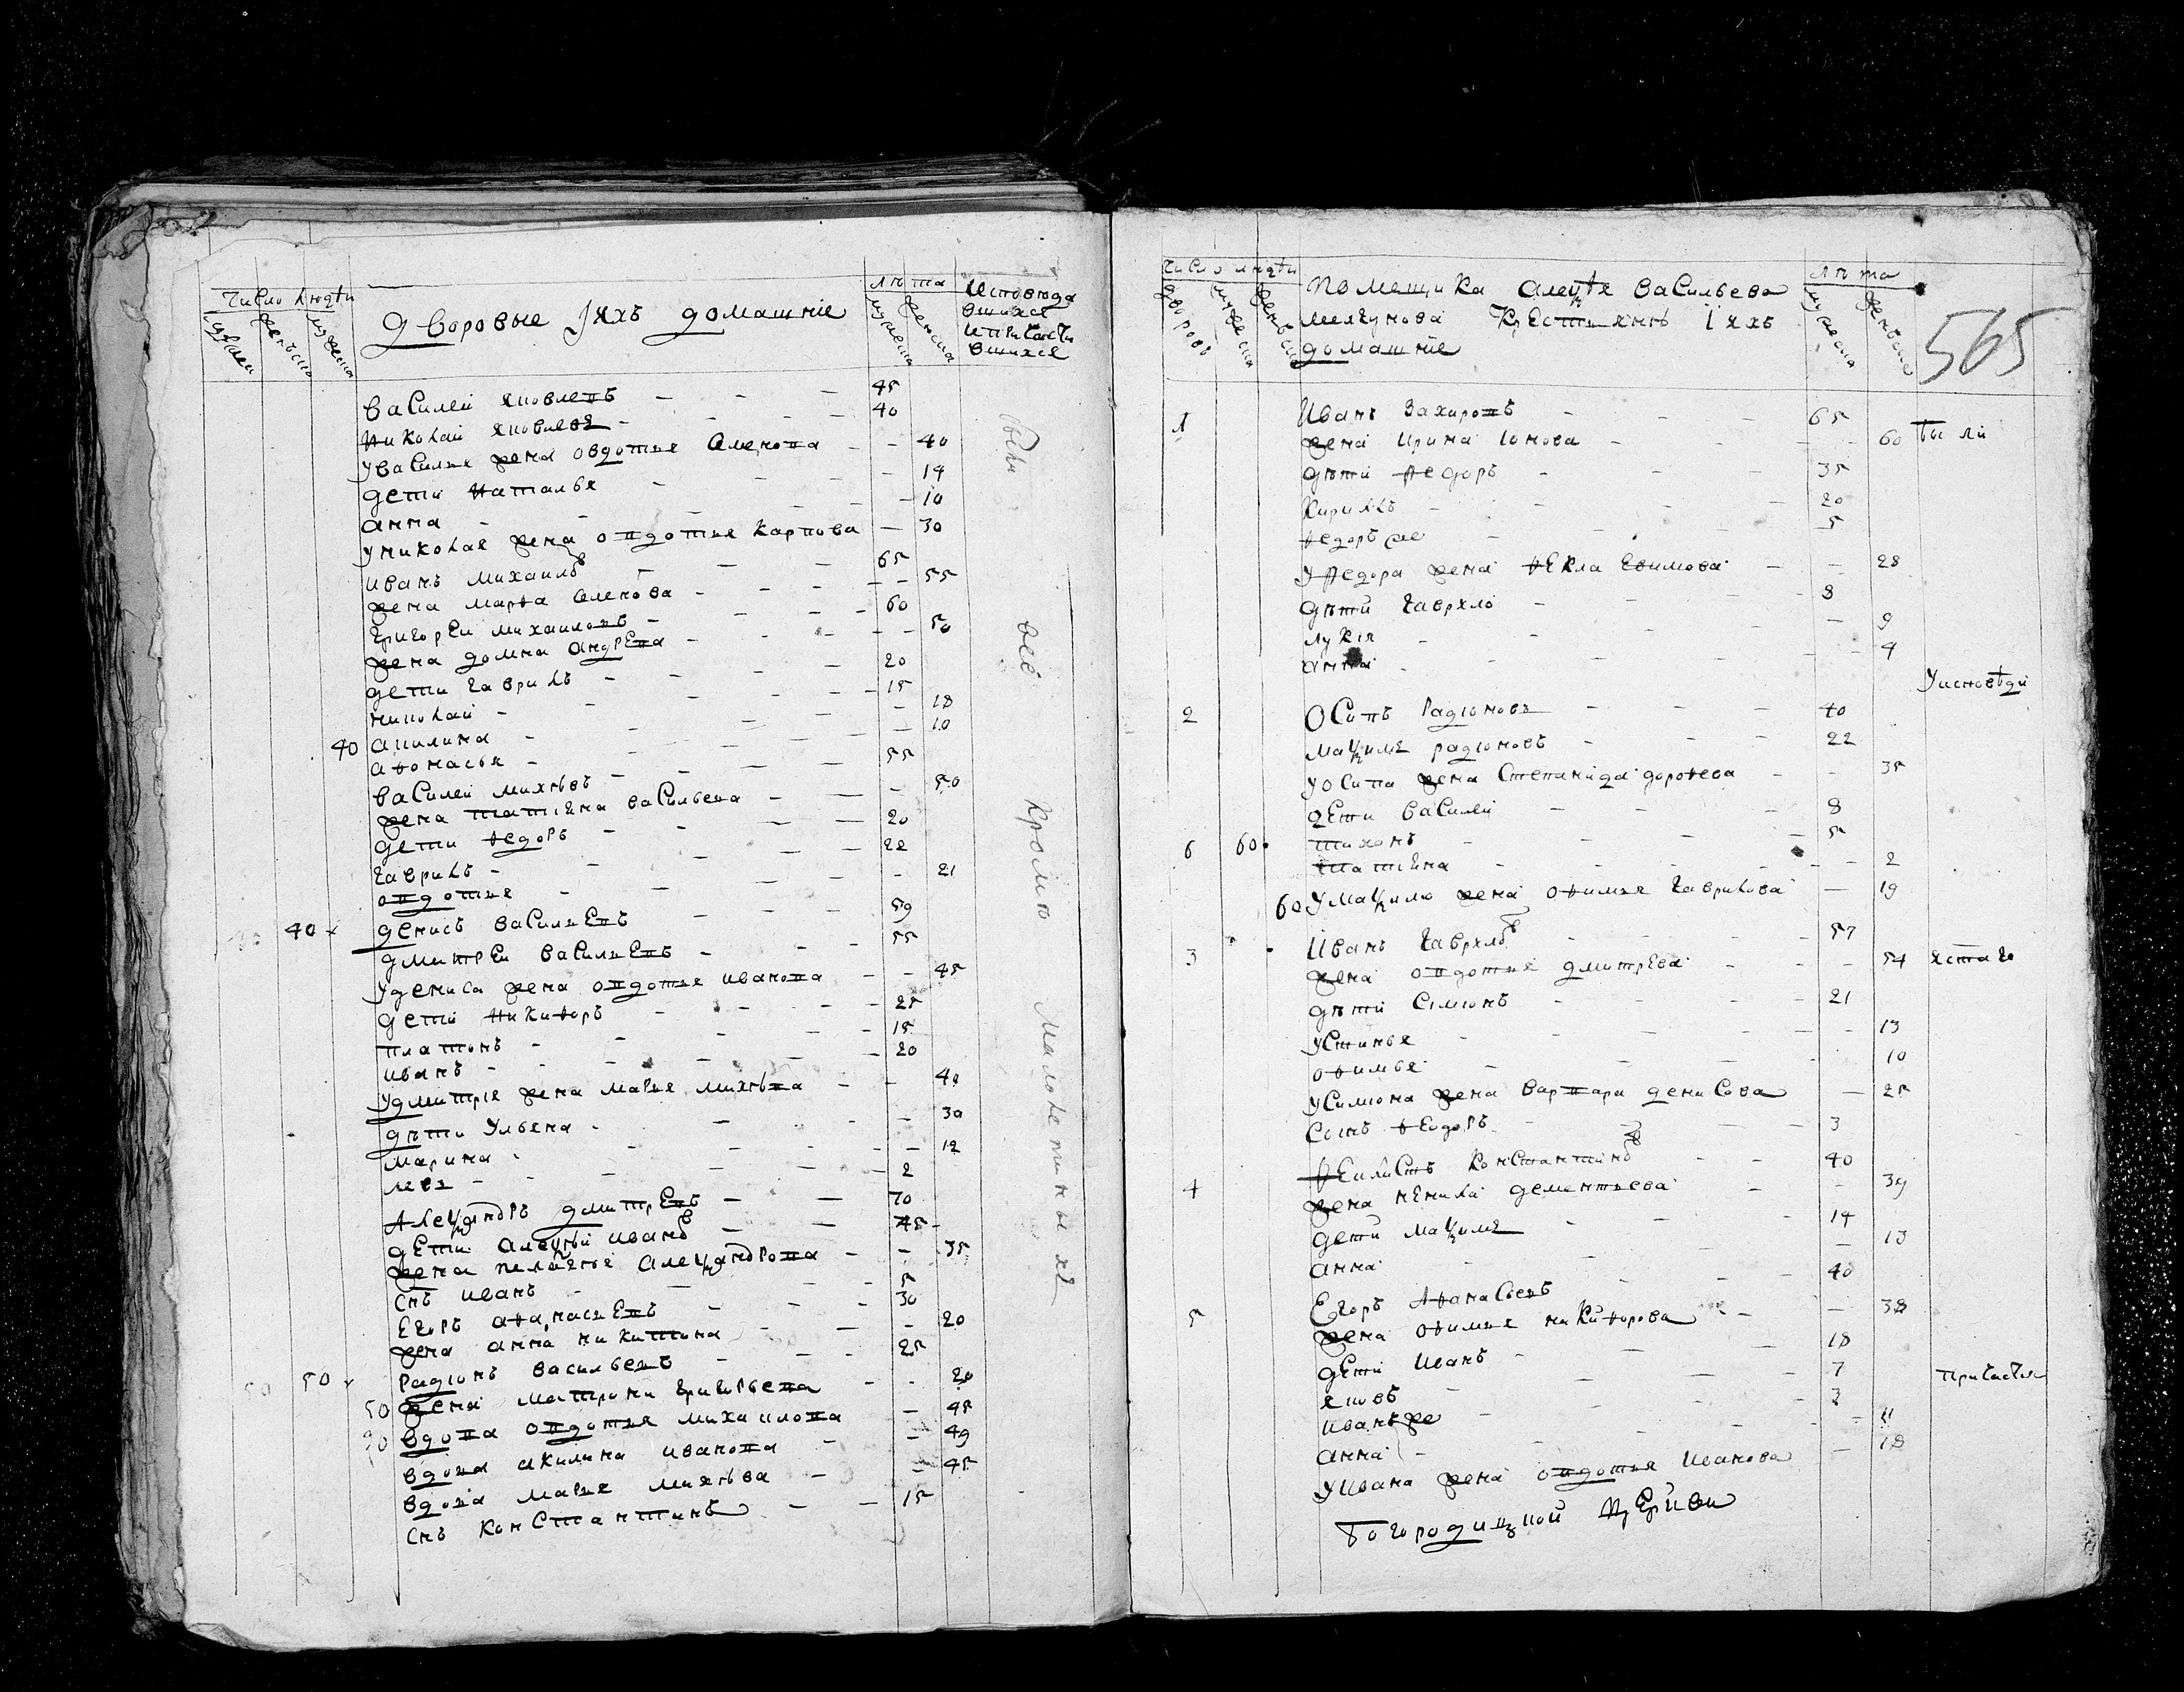 Число людѣи
Дворовые Iихъ домашние
лѣта
мужеска
женска
Исповѣда
вшихся
ипричасти
вшихся
василеи яковлевъ - - - 45
николаи яковлевъ - - - 40
уВасилья жена овдотья Семенова - - 40
дети наталья - - - 14
анна - - - 10
униколая жена овдотья карпова - 30
иванъ михаиловъ - - - 65
жена марѳа Семенова - - - 55
григореи михаиловъ - - - 60
жена домна андрЕва - - - 50
дети гаврилъ - - - 20
николаи - - - 15
40 акилина - - - 18
аѳонасья - - - 10
василеи михѣевъ - - - 55
жена татияна васильева - - 50
дети ѳедоръ - - - 20
гаврилъ - - - 22
овдотья - - - 21
40 денисъ васильЕвъ - - - 59
дмитрЕи васильЕвъ - - - 55
уДениса жена овдотья иванова - - 45
дети никиѳоръ - - - 25
платонъ - - - 15
иванъ - - - 20
удмитрья жена марья михѣева - - 40
дѣти ульяна - - - 30
марина - - - 12
левъ - - - 2
Александръ дмитрЕвъ - - 70
дети алексѣи ивановъ - - 45
жена пелагея александрова - - 35
снъ иванъ - - - 5
Егоръ аѳанасьЕвъ - - - 30
жена анна никитина - - 20
50 радионъ васильевъ - - - 25
50 жена матрона григорьева - - 20
вдова овдотья михаилова - 45
вдова акилина иванова - - 49
вдова марья михѣева - - 45
снъ Константинъ - - 15
были все кромѣ малолетныхъ
Число людѣи
дворовъ
мужеска
женска
Помещика алексѣя васильева
мелгунова крестиянъ Iихъ
домашние
лѣта
мужеска
женска
565
1 Иванъ Захаровъ - - - 65
жена Ирина Ионова - - - 60 были
дѣти ѳедоръ - - - 35
Кирилъ - - - 20
ѳедоръ же - - - 5
уѳедора жена ѳЕкла Еѳимова - - 28
дѣти гаврило - - - 8
лукия - - - 9
анна - - - 4
Уисповѣди
2 Осипъ радионовъ - - - 40
максимъ радионовъ - - - 22
уОсипа жена Степанида дороѳева - - 35
дЕти василеи - - - 8
6 60 тихонъ - - - 5
татияна - - - 2
60 умаксима жена оѳимья гаврилова - 19
3 Иванъ гавриловъ - - - 57
жена овдотья дмитрЕва - - - 54 истаго
дѣти Симионъ - - - 21
устинья - - - 13
оѳимья - - - 10
уСимиона жена варвара денисова - 25
Сынъ ѳЕодоръ - - - 3
4 ѳЕилистъ Константиновъ - - 40
жена нЕнила дементьева - - 39
дети максимъ - - - 14
анна - - - 13
5 Егоръ Аѳанасьевъ - - - 40
жена оѳимья никиѳорова - - 38
дЕти иванъ - - - 18
яковъ - - - 7 причастия
иванъ же - - - 3
анна - - - 11
уИвана жена овдотья Иванова - 18
Богородицкой цЕркви